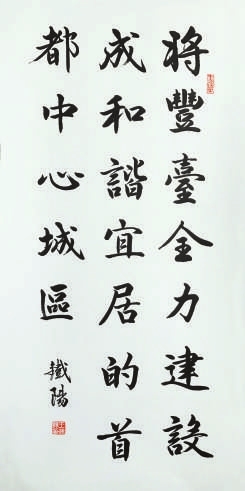 将豐臺全力建設
成和諧宜居的首
都中心城區
鐵陽